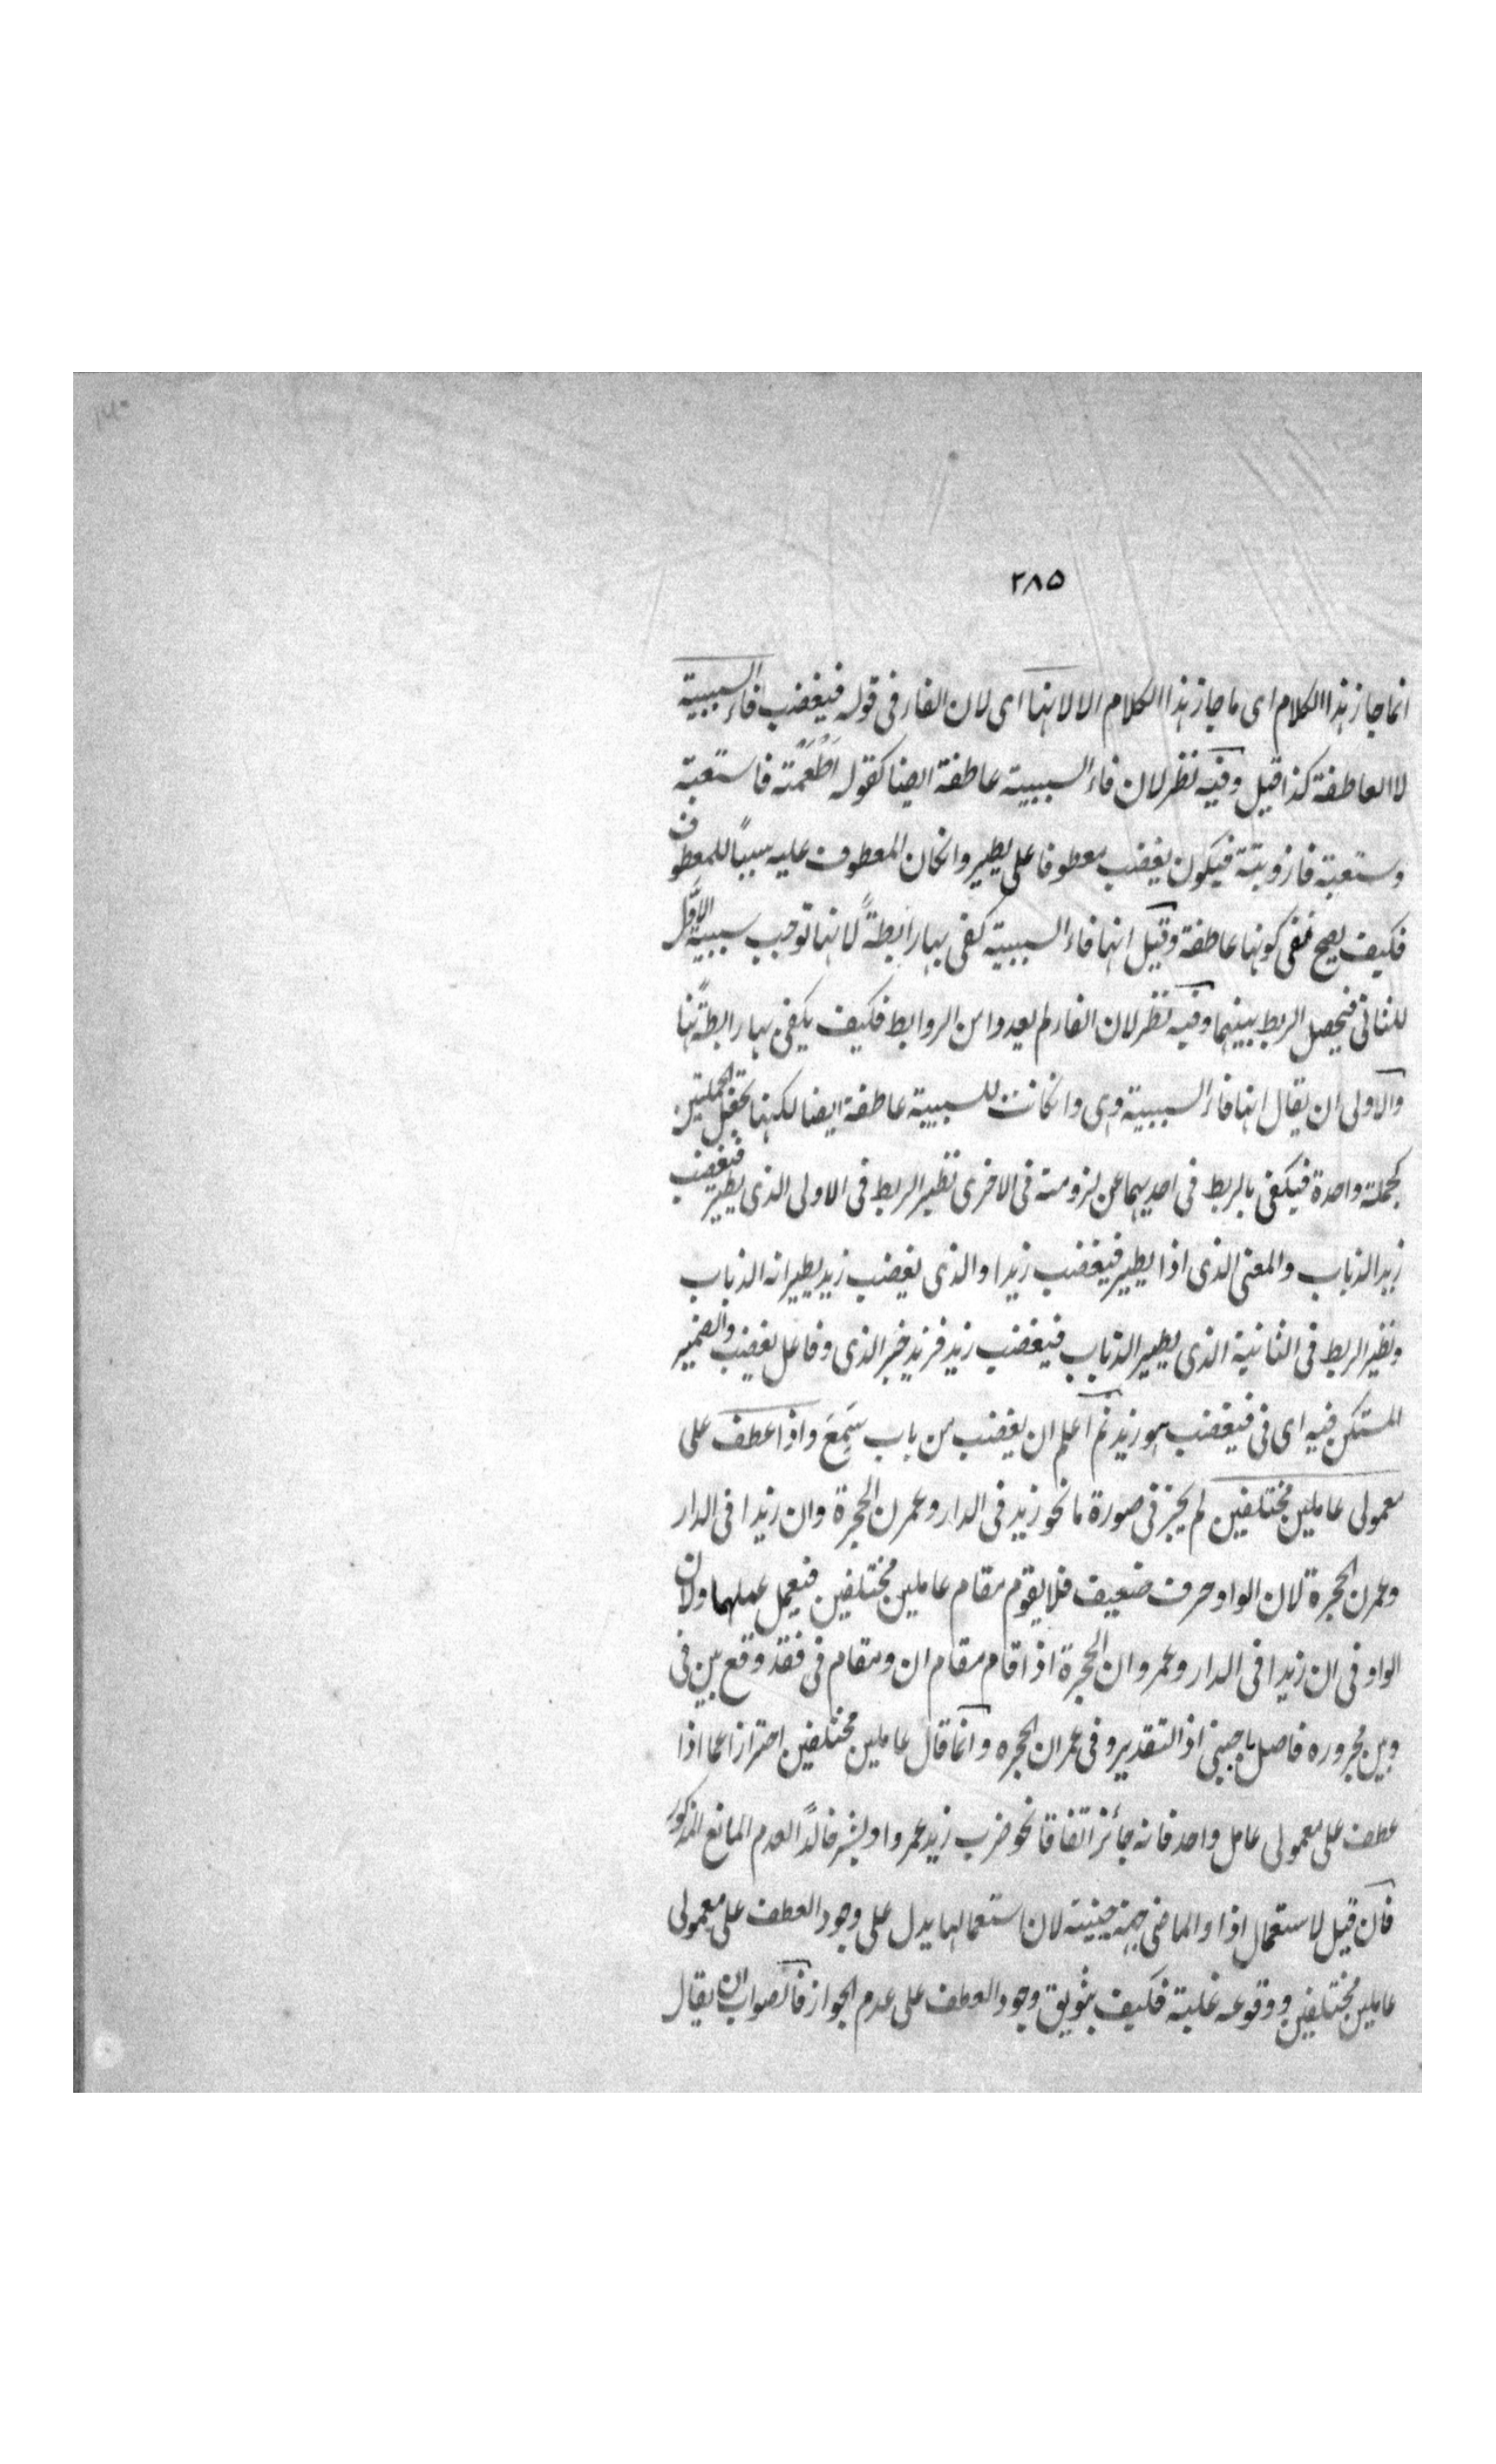 ٢٨٥
انما جاز هذا الكلام اى ما جاز هذا الكلام الا لانها اى لان الفاء فى قوله فيغضب فاء السببية
لا العاطفة كذا قيل وفيه نظر لان فاء السببية عاطفة ايضا كقوله اطعمته فاستعبته
وستعبته فازويته فيكون يغضب معطوفا على يطير وانكان المعطوف عليه سبباً للمعطوف
فكيف يصح نفى كونها عاطفة وقيل انها فاء السببية كفى بها رابطةً لانها توجب سببية الاوّل
للثانى فيحصل الربط بينهما وفيه نظر لان الفاء لم يعدوا من الروابط فكيف يكفى بها رابطةً هنا
والاولى ان يقال انها فاء السببية وهى وانكانت للسببية عاطفة ايضا لكنها تجعل الجملتين
كجملة واحدة فيكفى بالربط فى احديهما عن لزومه فى الاخرى نظير الربط فى الاولى الذى يطير فيغضب
زيد الذباب والمعنى الذى اذا يطير فيغضب زيد او الذى يغضب زيد بطيرانه الذباب
ونظير الربط فى الثانية الذى يطير الذباب فيغضب زيد فزيد خبر الذى وفاعل يغضب والضمير
المستكن فيه اى فى فيغضب هو زيد ثم اعلم ان يغضب من باب سَمِعَ واذا عطف على
معمولى عاملين مختلفين لم يجز فى صورة ما نحو زيد فى الدار وعمرن الحجرة وان زيدا فى الدار
وعمرن الحجرة لان الواو حرف ضعيف فلا يقوم مقام عاملين مختلفين فيعمل عملهما ولان
الواو فى ان زيدا فى الدار وعمروان الحجرة اذا قام مقام ان ومقام فى فقد وقع بين فى
وبين مجروره فاصل باجنبى اذ التقدير وفى عمران الحجره وانما قال عاملين مختلفين احترازا عما اذا
عطف على معمولى عامل واحد فانه جائز اتفاقا نحو ضرب زيد عمروا وبشر خالداً لعدم المانع المذكور
فان قيل لاستعمال اذا والماضى لان استعمالها يدل على وجود العطف على معمولى
عاملين مختلفين ووقوعه غلبة فكيف وجود العطف على عدم الجواز فالصواب ان يقال